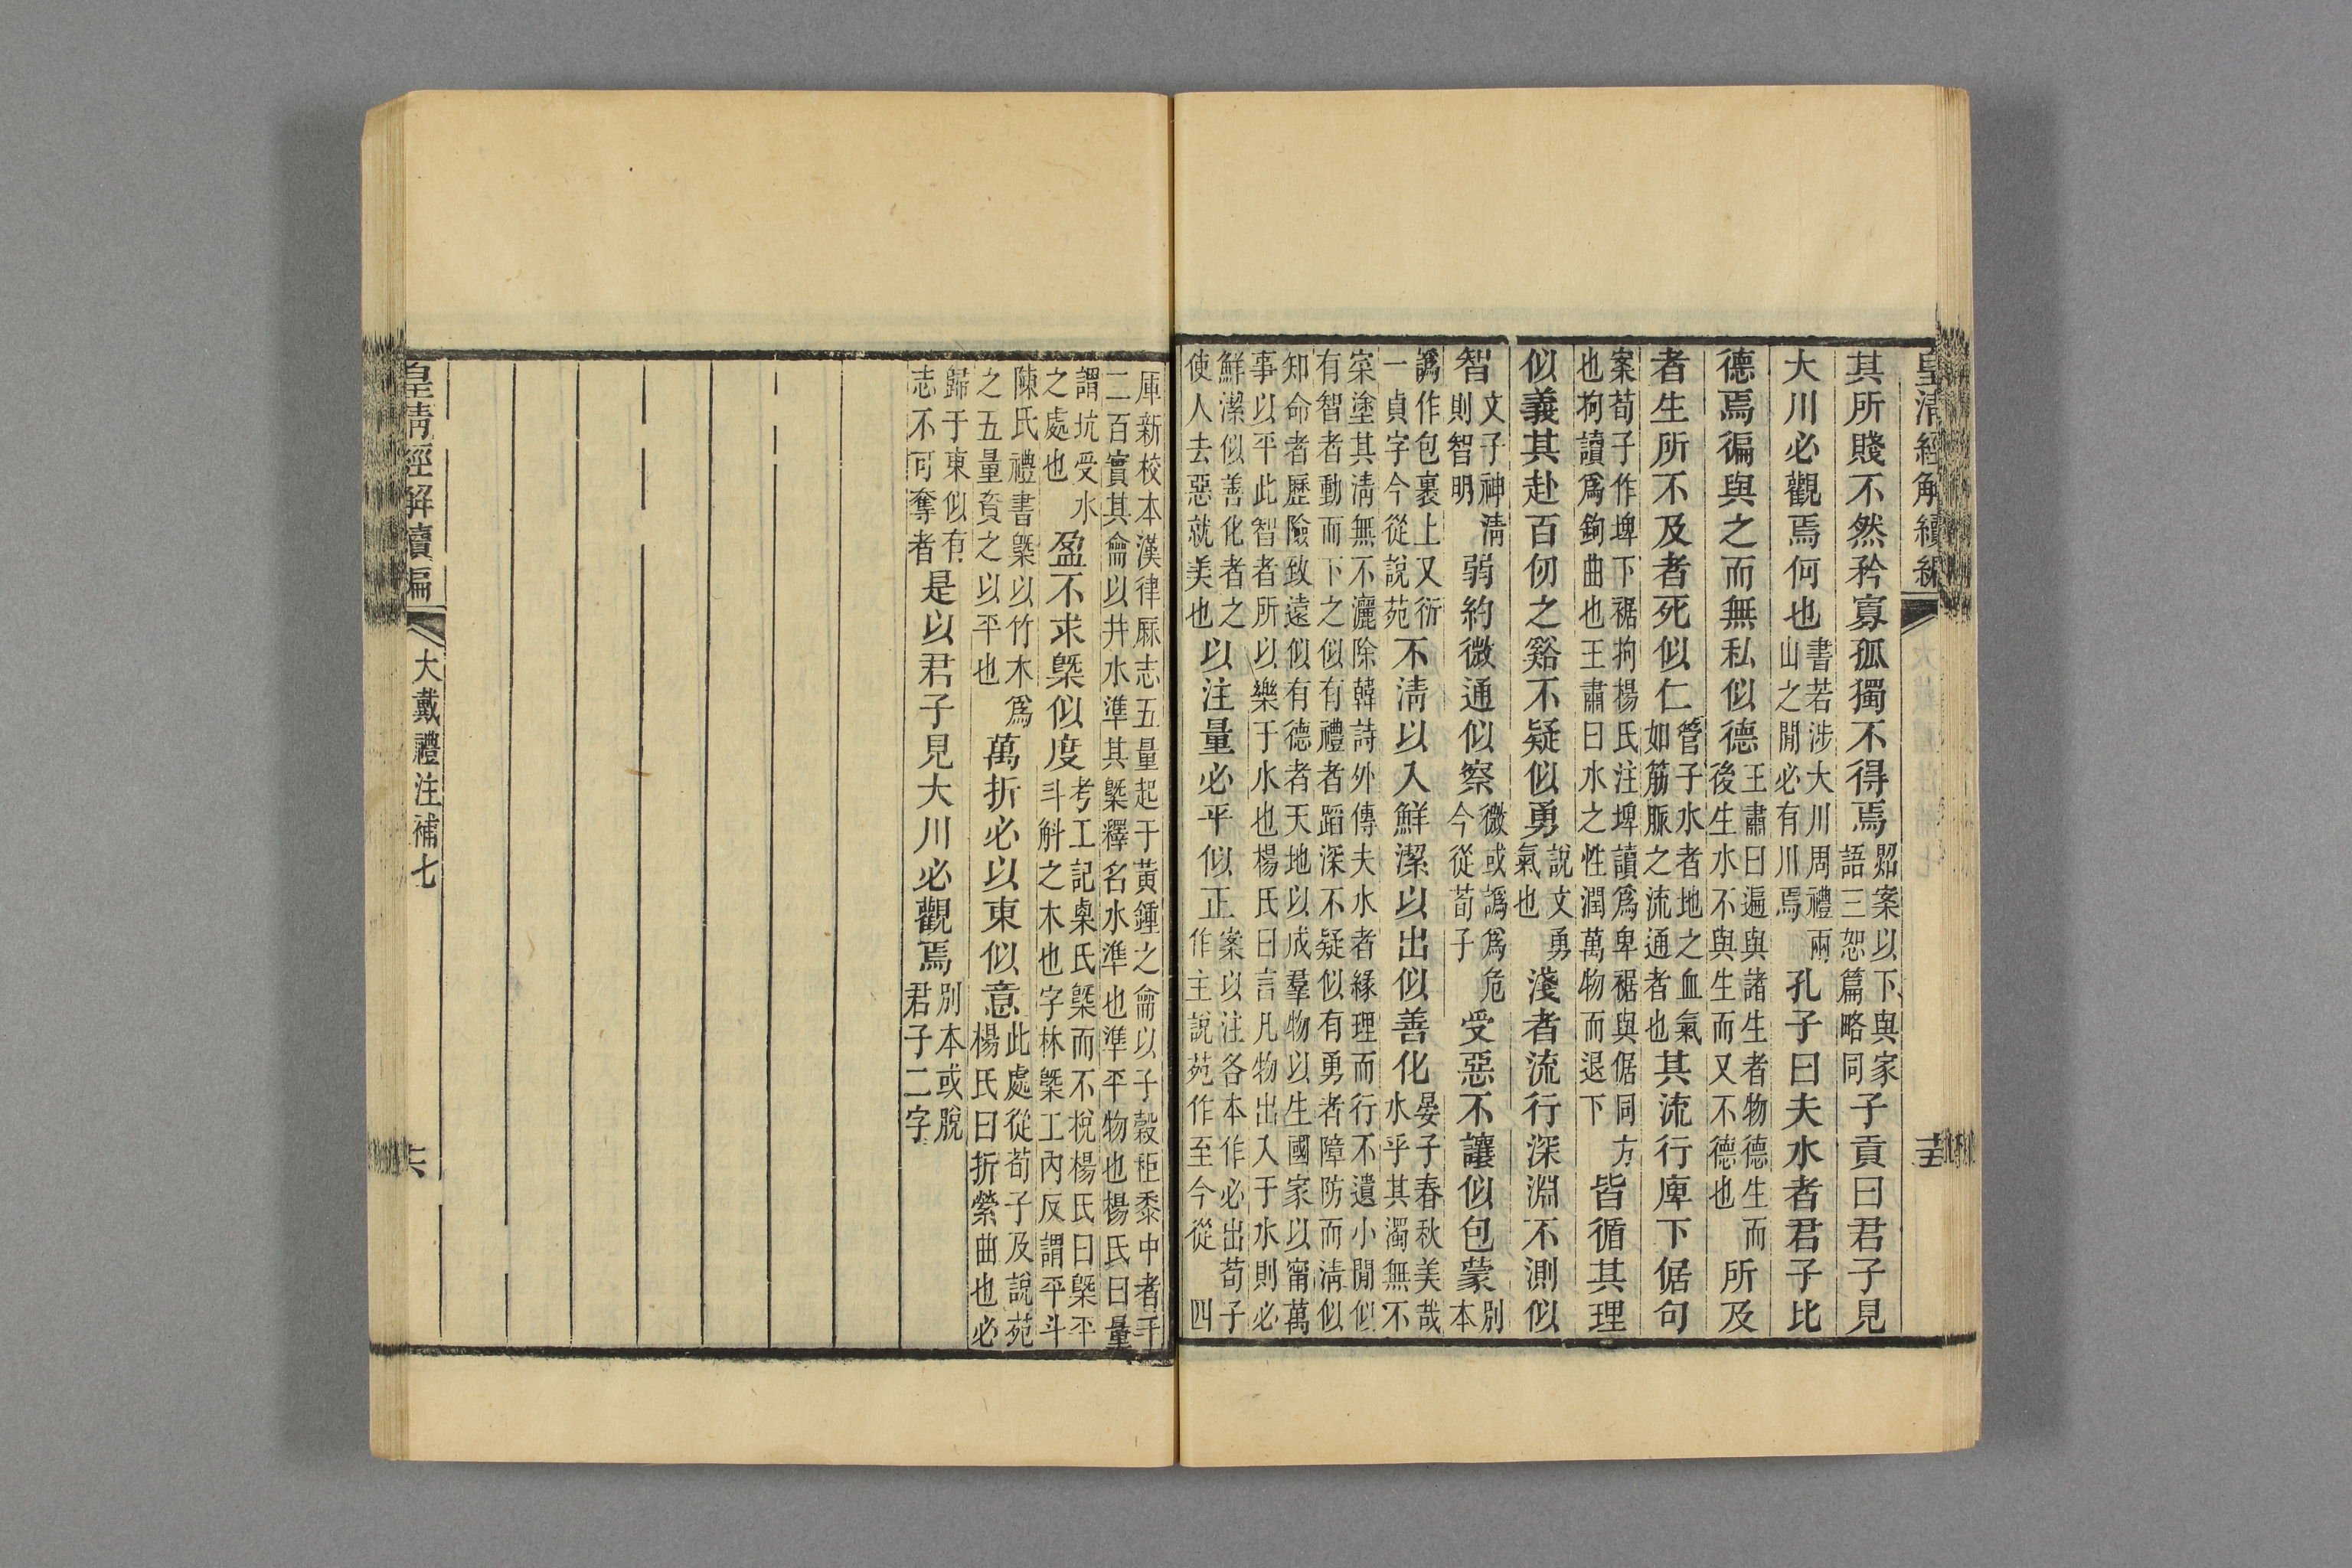 皇清經解續編
其所賤不然矜寡孤獨不得焉照案以下與家語三恕篇略同子貢曰君子見
大川必觀焉何也書若涉大川周禮兩山之閒必有川焉孔子曰夫水者君子比
德焉徧與之而無私似德王肅曰遍與諸生者物德生而後生水不與生而又不德也所及
者生所不及者死似仁管子水者地之血氣如筋脈之流通者也其流行庳下倨句
案荀子作埤下裾拘楊氏注埤讀爲卑裾與倨同方也拘讀爲鉤曲也王肅曰水之性潤萬物而退下皆循其理
似義其赴百仞之谿不疑似勇說文勇氣也淺者流行深淵不測似
智文子神淸則智明弱約微通似察微或譌爲危今從荀子受惡不讓似包蒙別本
譌作包裹上又衍一貞字今從說苑不淸以入鮮潔以出似善化晏子春秋美哉水乎其濁無不
寀塗其淸無不灑除韓詩外傳夫水者緣理而行不遺小閒似有智者動而下之似有禮者蹈深不疑似有勇者障防而淸似
知命者歷險致遠似有德者天地以成羣物以生國家以甯萬事以平此智者所以樂于水也楊氏曰言凡物出入于水則必
鮮潔似善化者之使人去惡就美也以注量必平似正案以注各本作必出荀子作主說苑作至今從四
庫新校本漢律厤志五量起于黃鍾之龠以子穀秬黍中者千二百實其龠以井水準其槩釋名水準也準平物也楊氏曰量
謂坑受水之處也盈不求槩似度考工記㮚氏槩而不梲楊氏曰槩平斗斛之木也字林槩工內反謂平斗
陳氏禮書槩以竹木爲之五量資之以平也萬折必以東似意此處從荀子及說苑楊氏曰折縈曲也必
歸于東似有志不可奪者是以君子見大川必觀焉別本或脫君子二字
皇清經解續編
大戴禮注補七